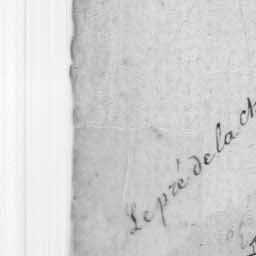 Le pré de la